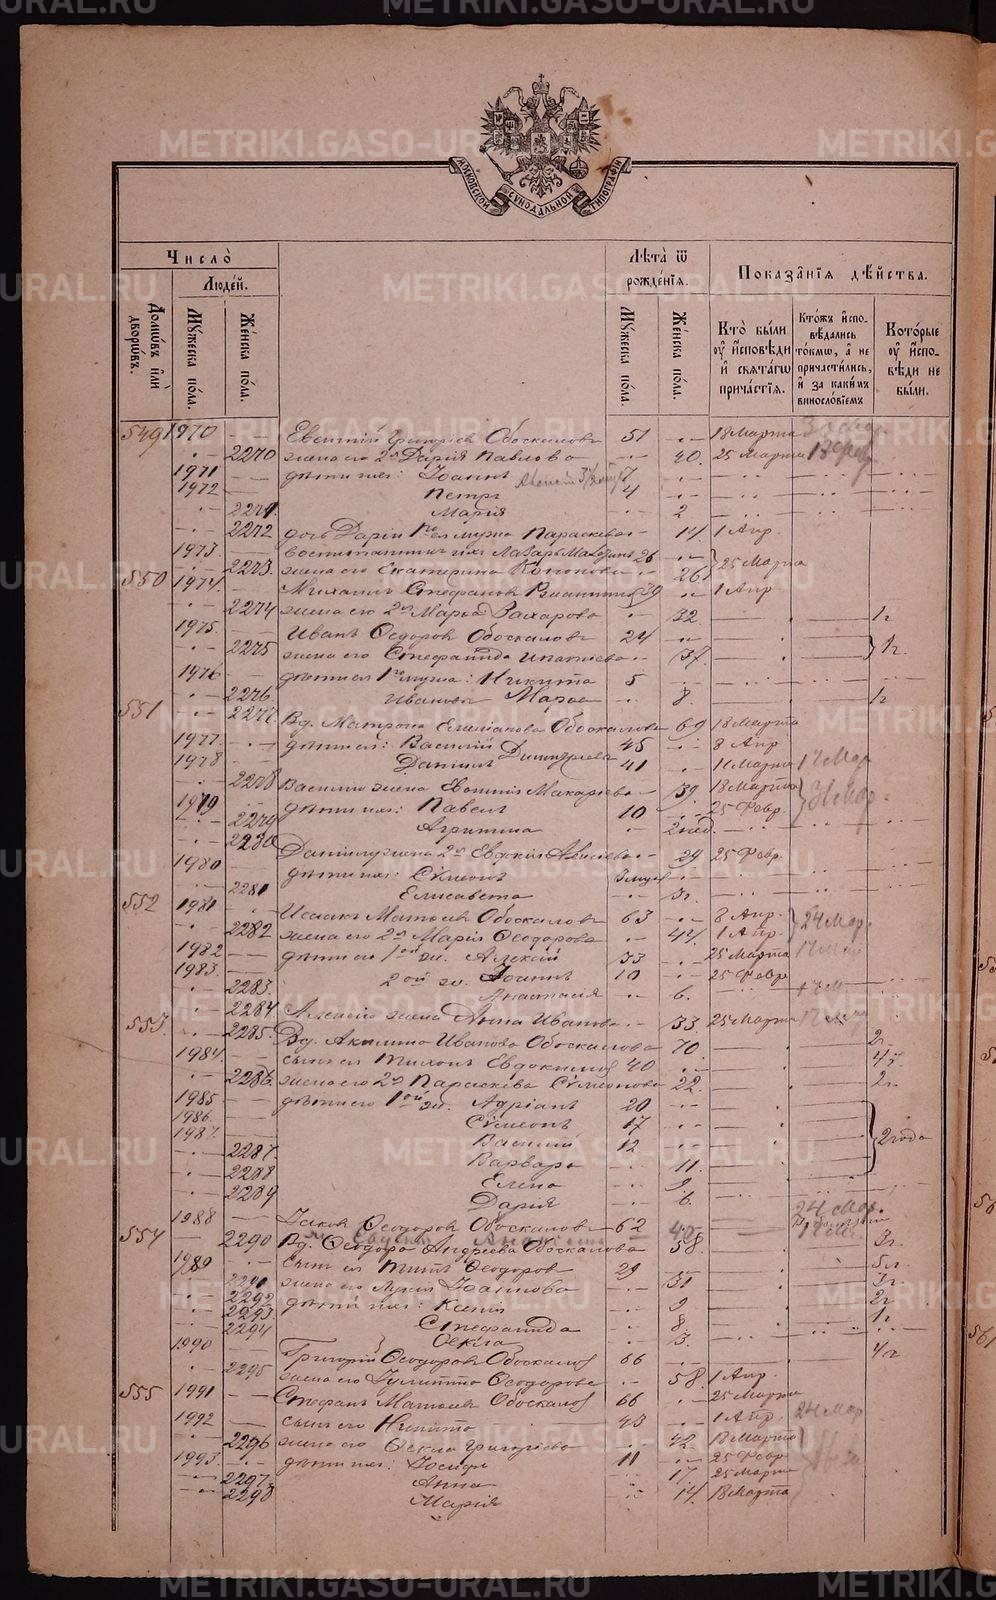 МОСКОВСКОЙ СѴНОДАЛЬНОЙ ТИПОГРАФІИ
Число̀
Людéй.
Домѡвъ и҆лѝ дворѡвъ.
Мꙋжеска пола.
Женска пола.
Лѣта ѿ рожденїѧ.
Мꙋжеска пола.
Женска пола.
Показанїѧ дѣйства.
Кто были оу исповѣди и свѧтагѡ причастїѧ.
Ктожъ исповѣдались токмѡ, а не причастились, и за какимъ винословїемъ
Которые оу исповѣди не были.
549 1970 Евенмтій Григоріев Обоскалов 51 18 Марта
2270 жена его 2я Дарія Павлова 40. 25 Марта
1971 дѣти их: Іоаннъ 7
1972 Петръ 4
2271 Марія 2
2272 дочь Даріи 1го ея мужа Параскева 14. 1 Апр.
1973. воспитанник их Лазарь 26
2273. жена его Екатерина 26 25 Марта
550 1974. Михаилъ Стефанов 39 1 Апр
2274 жена его 2я Марья Захарова 32 1г
1975. Иванъ Ѳеодоров Обоскалов 24
2275 жена его Стефанида Игнатіева 37. 1г.
1976 дѣти ея 1го мужа: Никита 5
2276 Иванова Марья 8. 1г
551 2277. Вд. Матрона Емельянова Обоскалова 69 18 Марта
1977. дѣти ея: Василій 45 8 Апр.
1978 Даніилъ Димитріевы 41 11 Марта 17 Мар
2278 Василія жена Евѳимія Макарьева 39. 18 Марта
1979 дѣти их: Павелъ 10 25 Февр. 31 Мар.
2279 Агрипина 2 нед.
2280 Даніила жена 2я Евдокія 29 25 Февр.
1980 дѣти их: Сѵмеонъ 3 мѣс
2281 Елисавета 3.
552 1981 Исаакъ Матѳіев Обоскалов 63 8 Апр. 24 Мар.
2282 жена его 2я Марія Ѳеодорова 44. 1 Апр.
1982 дѣти его 1ой ж. Алексій 33 25 Марта
1983. 2ой ж. Іоаннъ 10 25 Февр
2283. Анастасія 6.
2284. Алексія жена Анна Иванова 33. 25 Марта
553 2285. Вд. Акилина Иванова Обоскалова 70. 2г.
1984. сынъ ея Тихонъ Евдокимов 40 4г.
2286. жена его 2я Параскева Сѵмеонова 22. 2г.
1985 дѣти его 1ой ж. Адріанъ 20
1986. Сѵмеонъ 17
1987. Василій 12 2 года
2287 Варвара 11.
2288 Елена 9
2289 Дарія 6.
1988 Іаков Ѳеодоров Обоскалов 62 24 Мар.
554 2290 Вд. Ѳеодора Андреева Обоскалова 58. 3г.
1989 сынъ ея Титъ Ѳеодоров 29 5л.
2291 жена его Марія Іоаннова 31 3г.
2292 дѣти их: Ксенія 9 2г
2293 Стефанида 8. 1г
2294 Ѳекла 3.
1990 Григорій Ѳеодоров Обоскалов 66 4г
2295 жена его Іулитта Ѳеодорова 58. 1 Апр.
555 1991 Стефанъ Матѳіев Обоскалов 66 25 Марта
1992 сынъ его Никита 43 1 Апр. 24 Мар
2296 жена его Ѳекла Григоріева 42. 18 Марта
1993. дѣти их: Іосифъ 11 25 Февр
2297 Анна 17 25 Марта
2298 Марія 14. 18 Марта
METRIKI.GASO-URAL.RU